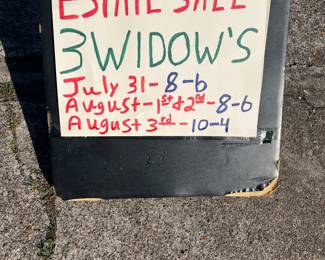 ESTATE SALE
3 WIDOW'S
July 31-8-6
August-1st & 2nd-8-6
August 3rd-10-4